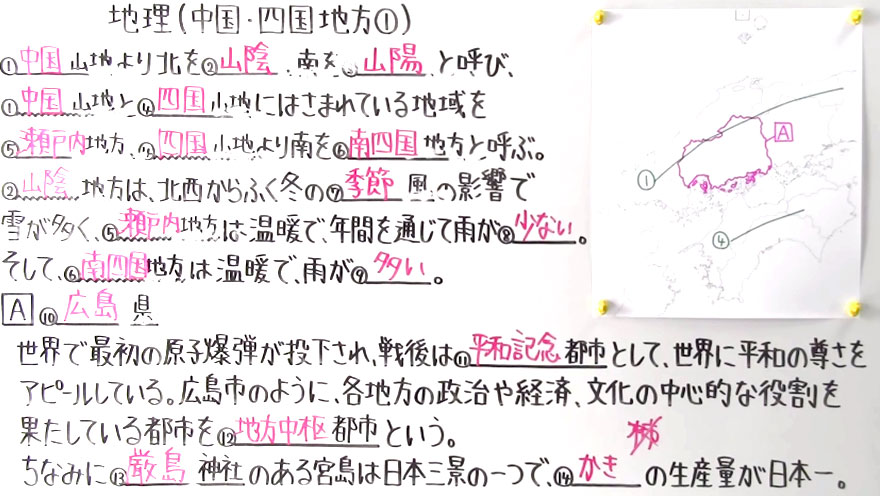 地理(中国・四国地方①)
①中国山地より北を②山陰、南を③山陽と呼び、
①中国山地と④四国山地にはさまれている地域を
⑤瀬戸内地方、④四国山地より南を⑥南四国地方と呼ぶ。
②山陰地方は、北西からふく冬の⑦季節風の影響で
雪が多く、⑤瀬戸内地方は温暖で、年間を通じて雨が⑧少ない。
そして、⑥南四国地方は温暖で、雨が⑨多い。
A ⑩広島県
世界で最初の原子爆弾が投下され、戦後は⑪平和記念都市として、世界に平和の尊さを
アピールしている。広島市のように、各地方の政治や経済、文化の中心的な役割を
果たしている都市を⑫地方中枢都市という。
ちなみに⑬厳島神社のある宮島は日本三景の一つで、⑭かきの生産量が日本一。
A
①
④